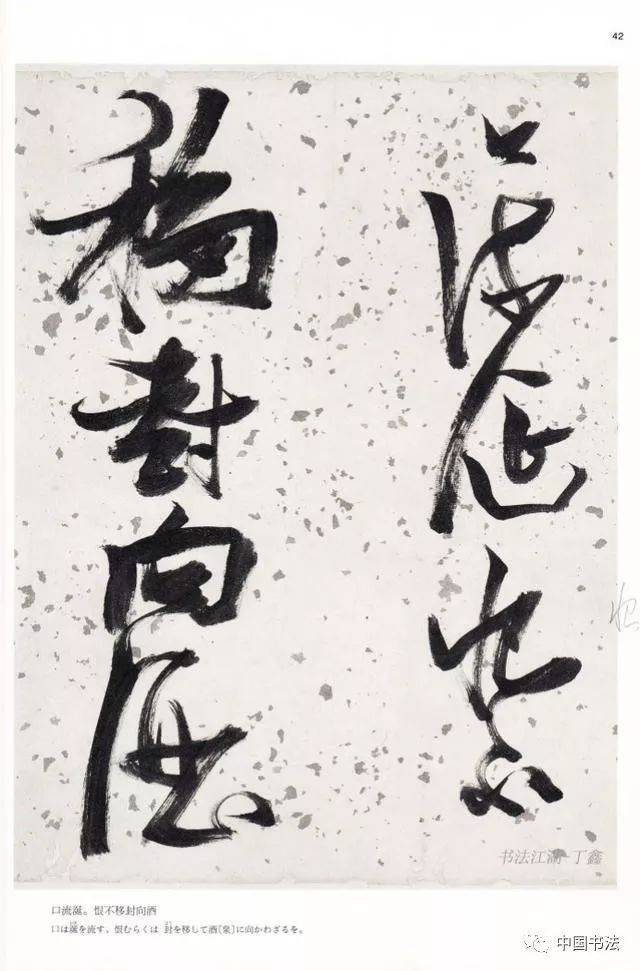 42
口流涎恨不
移封向酒
书法江湖 丁鑫
口流涎。恨不移封向酒
口は涎を流す、恨むらくは 封を移して酒〔泉〕に向かわざるを。
中国书法